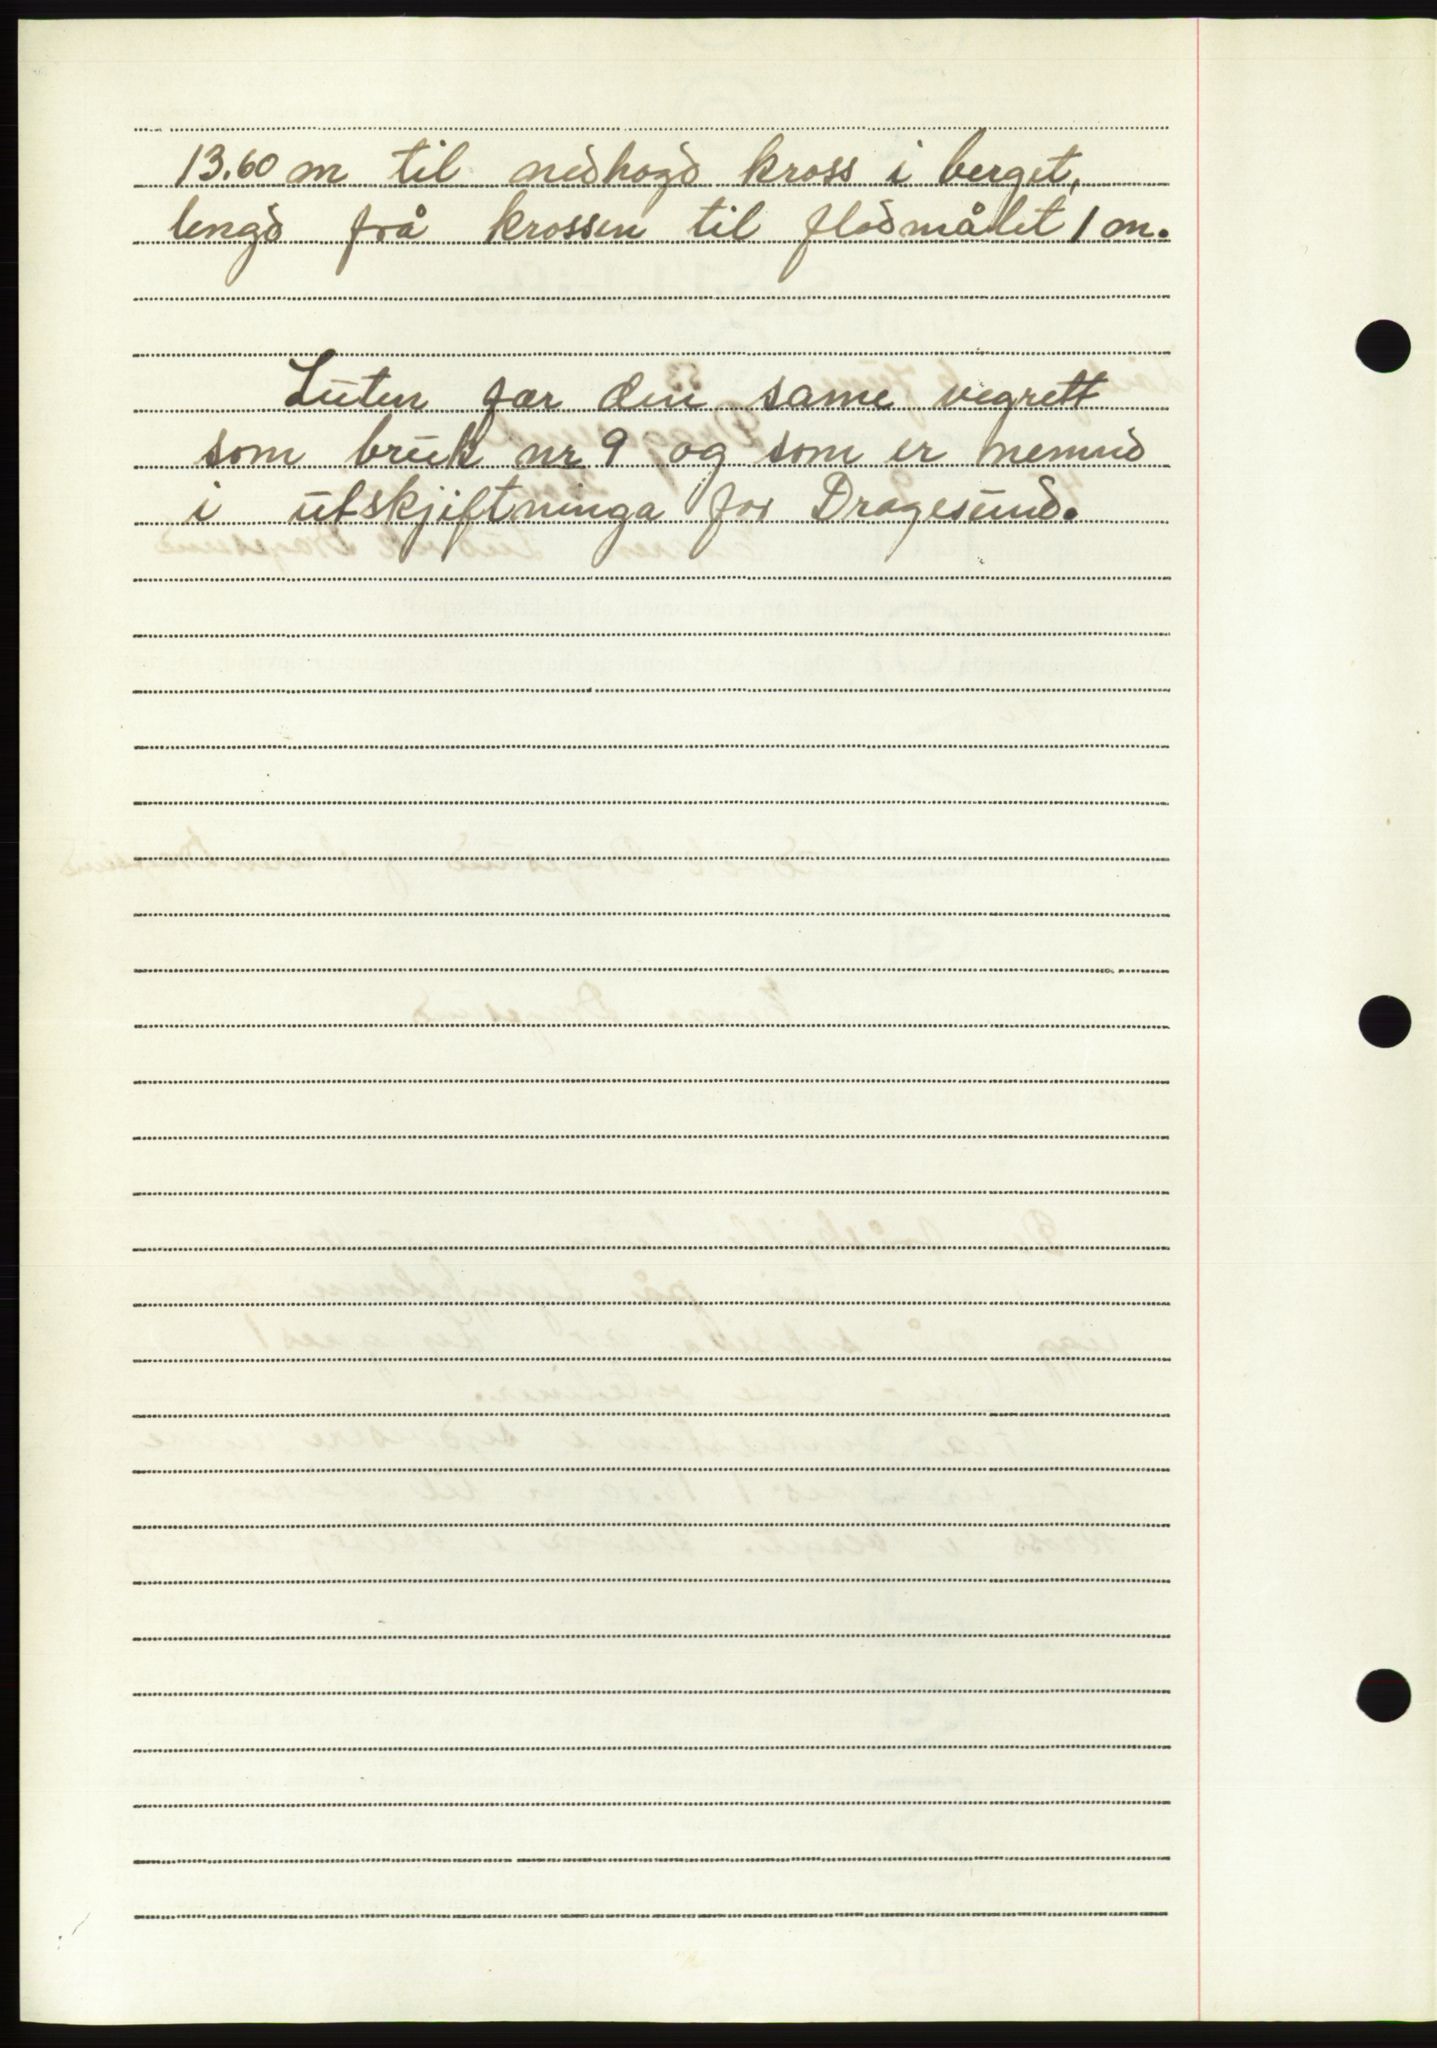 13.60 m til nedhogd kross i berget,
lengd frå krossen til flodmålet 1 m.
Luten får den same vegrett
som bruk nr 9 og som er nemnd
i utskjiftninga for Dragesund.